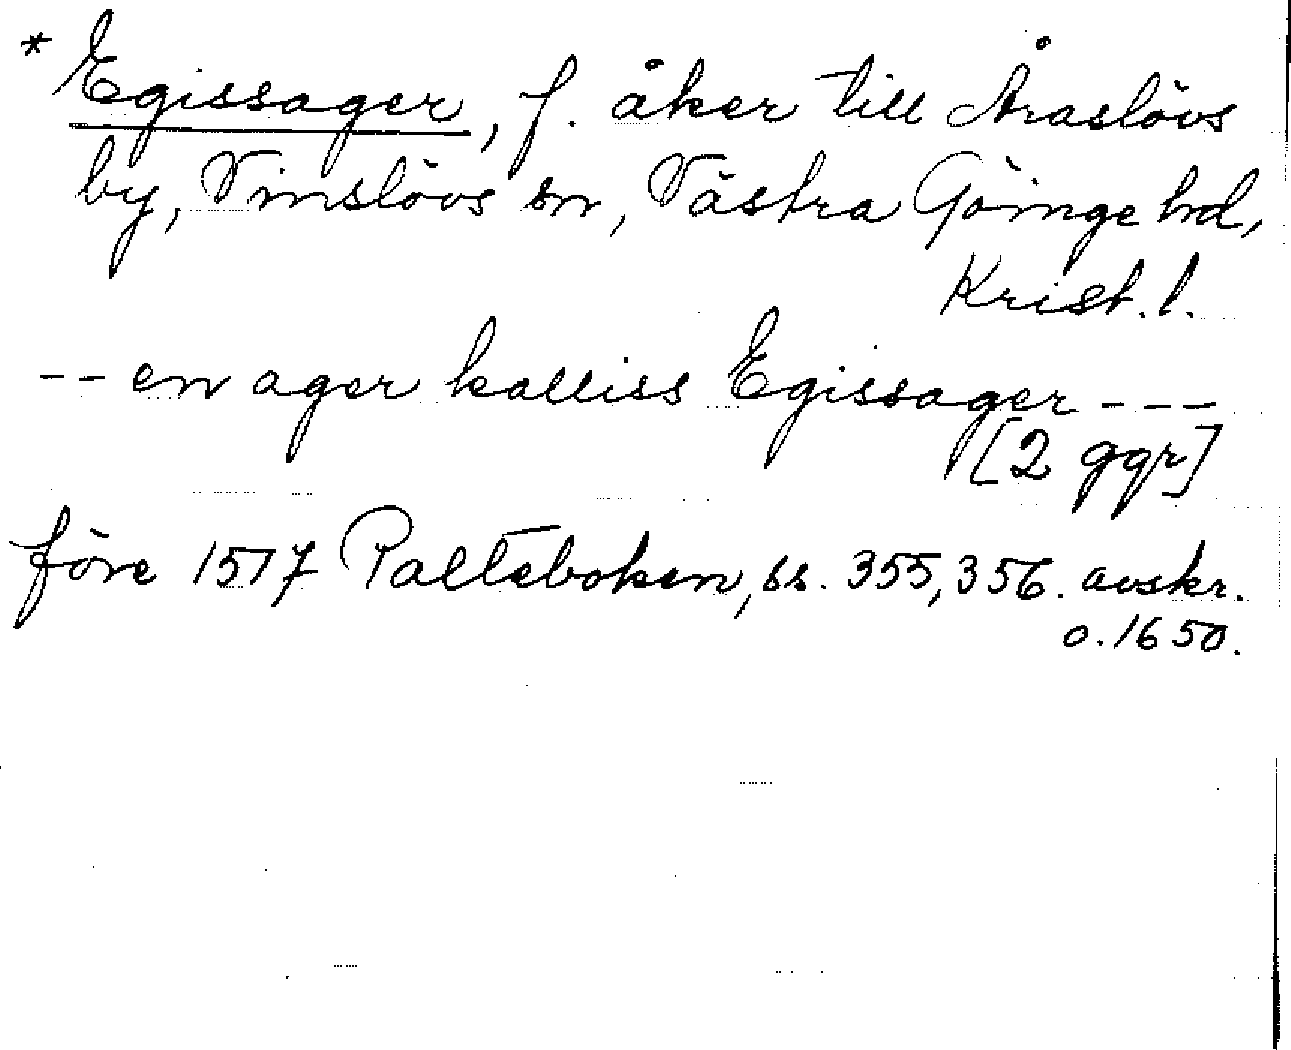 * Egissager, f. åker till Åraslövs
by, Vinslövs sn, Västra Göinge hd,
Krist. l.
-- en ager kalliss Egissager ---
[2 ggr]
före 1517 Palteboken, ss. 355, 356. avskr.
o. 1650.